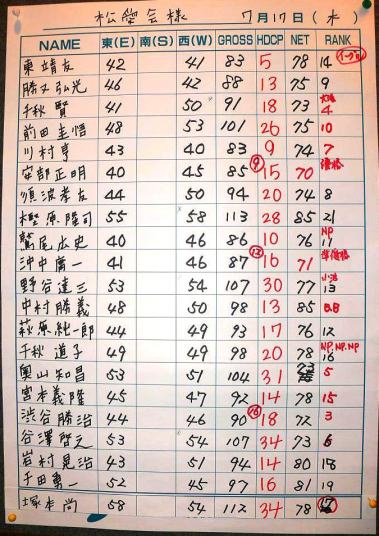 松愛会様 7月17日(水)
NAME 東(E) 南(S) 西(W) GROSS HDCP NET RANK
東 靖友 42 41 83 5 78 14
勝又 弘光 46 42 88 13 75 9
千秋 賢 41 50 91 18 73 4
前田 圭悟 48 53 101 26 75 10
川村 亨 43 40 83 9 74 7
安部 正明 40 45 85 15 70 優勝
須波 孝友 44 50 94 20 74 8
樫原 隆司 55 58 113 28 85 21
鷲尾 広史 40 46 86 10 76 NP 11
沖中 廣一 41 46 87 16 71 準優勝
野谷 達三 53 54 107 30 77 13
中村 勝義 48 50 98 13 85 B.B
萩原 純一郎 44 49 93 17 76 12
千秋 道子 49 49 98 20 78 NP.NP.NP 16
奥山 和昌 53 51 104 31 73 5
宮本 義隆 45 47 92 14 78 15
渋谷 勝治 44 46 90 18 72 3
谷澤 啓之 53 54 107 34 73 6
岩村 晃治 43 51 94 14 80 18
千田 勇一 52 45 97 16 81 19
塚本 尚 58 54 112 34 78 17